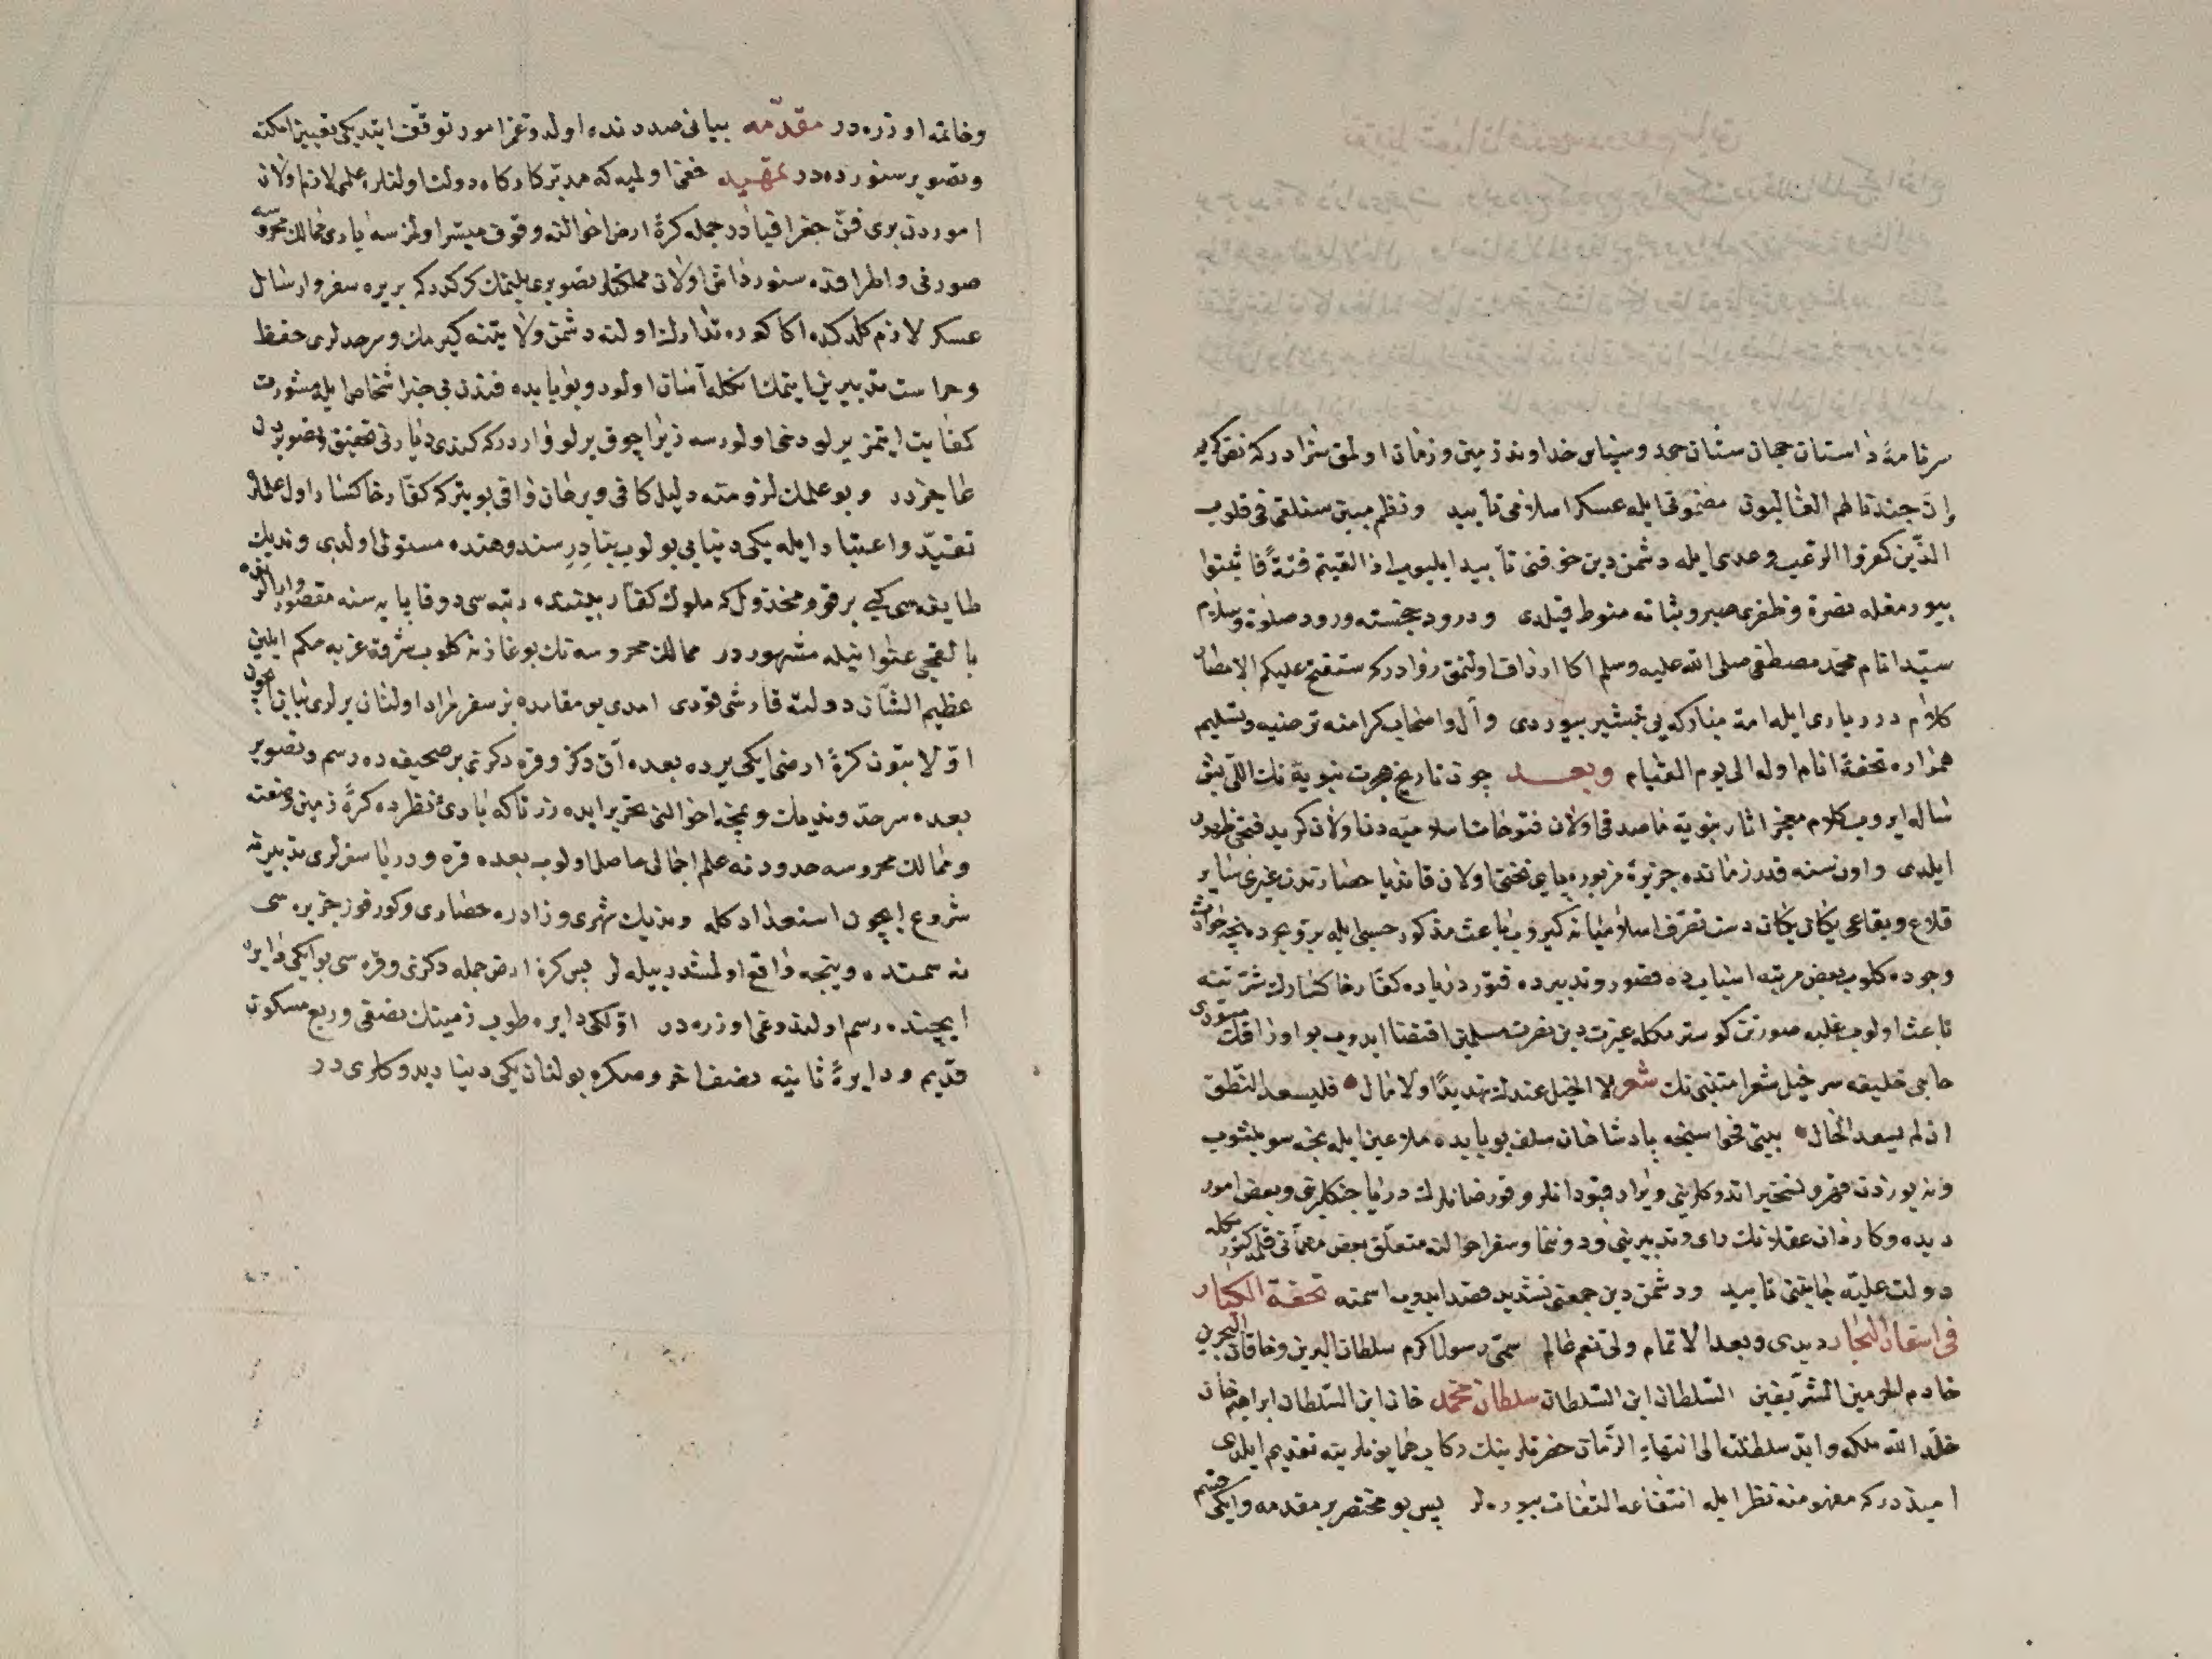 سرنامۀ داستان جهان ستان حمد و سپاس خداوند زمین و زمان اولمق سزادر که نص کریم
إن جندنا لهم الغالبون مضمونی ایله عسکر اسلامی تأیید و نظم مبین سنلقی فی قلوب
الذین کفروا الرعب وعدی ایله دشمن دین خوفنی تأبید ایلیوب اذا لقیتم فئة فاثبتوا
بیورمغله نصرة و ظفری صبر و ثباته منوط قیلدی و درود خجسته ورود صلوة و سلام
سید انام محمد مصطفی صلی الله علیه وسلم اکا ارزاق اولنمق روادر که ستفتح علیکم الامصار
کلام درر باری ایله امة مبارکه یی تبشیر بیوردی و آل و اصحاب کرامنه ترضیه و تسلیم
همواره تحفۀ انام اوله الی یوم القیام وبعد چون تاریخ هجرت نبویه نك اللی بش
سال ایروب کلام معجز اثار نبویه ماصدقی اولان فتوحات اسلامیه دن اولان کرید فتحی ظهور
ایلدی و اون سنه قدر زمانده جزیرۀ مزبوره پای تختی اولان قاندیا حصارندن غیری سایر
قلاع و بقاعی یکان یکان دست تصرف اسلامیانه کیروب باعث مذکور حسبی ایله بر و بحرده نیجه حوادث
وجوده کلوب بعض مرتبه اسبابده قصور و تدبیرده فتور زیاده کفار خاکسارك شرتنه
باعث اولوب غلبه صورتن کوسترمکله غیرت دین نصرت مسلمین اقتضا ایدوب بو اوراقك مسودی
حاجی خلیفه سر خیل شعرا متنبی نك شعر لا الخیل عندك تهدیها ولا مال • فلیسعد النطق
ان لم یسعد الحال • بیتی فحواسنجه پادشاهان سلف بو بابده ملاعین ایله نجه سویلشوب
و نه یوزدن قهر و تسخیر اتدوکلرینی و یراد قپودانلر و قورصانلرك دریا جنکلرینی و بعض امور
دیده و کاردان عقلانك رای و تدبیرینی و دوننما و سفر احوالنه متعلق بعض مهماتی قلمه کتورمکله
دولت علیه جانبنی تأیید و دشمن دین جمعنی تشدید قصد ایدوب اسمنه تحفة الکبار
فی اسفار البحار دیدی و بعد الاتمام ولی نعم عالم سمی رسول اکرم سلطان البرین و خاقان البحرین
خادم الحرمین الشریفین السلطان ابن السلطان سلطان محمد خان ابن السلطان ابراهیم خان
خلد الله ملکه و ابد سلطنته الی انتهاء الزمان حضرتلرینك رکاب همایونلرینه تقدیم ایلدی
امیددر که مفهومنه نظر ایله انتفاعه التفات بیوریلر پس بو مختصر بر مقدمه و ایکی قسم
و خاتمه اوزره در مقدمه بیانی صددنده اولدوغمز امور توقف ایتدیکی تعیین امکنه
و تصویر سنورده در تمهید خفی اولمیه که مدبر کارکاه دولت اولنلره علمی لازم اولان
اموردن بری فن جغرافیادر جمله کرۀ ارض احوالنه وقوف میسر اولمز سه باری ممالك محروسه
صورتی و اطرافده سنورداشی اولان مملکتلر تصویری بلنمك کرکدر که بر یره سفر و ارسال
عسکر لازم کلدکده اکا کوره تدارك اولنه دشمن ولایتنه کیرمك و سرحدلری حفظ
و حراست تدبیرین ایتمك انکله آسان اولور و بو بابده فندن بی خبر اشخاص ایله مشورت
کفایت ایتمز یرلو دخی اولورسه زیرا چوق یرلو واردر که کندی دیارنی تحقیق و تصویردن
عاجزدر و بو علمك لزومنه دلیل کافی و برهان وافی بو یتر که کفار خاکسار اول علمه
تقید و اعتبار ایله یکی دنیایی بولوب بنادر سند و هنده مستولی اولدی و ندیك
طایفه سی کبی بر قوم مخذول که ملوك کفار بیننده رتبه سی دوقایایه سنه مقصور
بالقجی عنوانیله مشهوردر ممالك محروسه نك بوغازنه کلوب شرق و غربه حکم ایلین
عظیم الشان دولته قارشی قودی امدی بو مقامده بز سفر مراد اولنان یرلری بیان ایچون
اولا بتون کرۀ ارضی ایکی یرده بعده آق دکز و قره دکزی بر صحیفه ده رسم و تصویر
بعده سرحد وندیك و نیجه احوالنی تحریر ایده رز تاکه بادی نظرده کرۀ زمین وضعنه
و ممالك محروسه حدودنه علم اجمالی حاصل اولوب بعده قره و دریا سفرلری تدبیرنه
شروع ایچون استعداد کله وندیك شهری و زادره حصاری و کورفوز جزیره سی
نه سمتده و نیجه واقع اولمشدر بیله لر پس کرۀ ارض جمله دکزی و قره سی بو ایکی دایره
ایچنده رسم اولندوغی اوزره در اولکی دایره طوپ زمینك نصفی و ربع مسکون
قدیم و دایرۀ ثانیه نصف اخر و صکره بولنان یکی دنیا دیدوکلری در